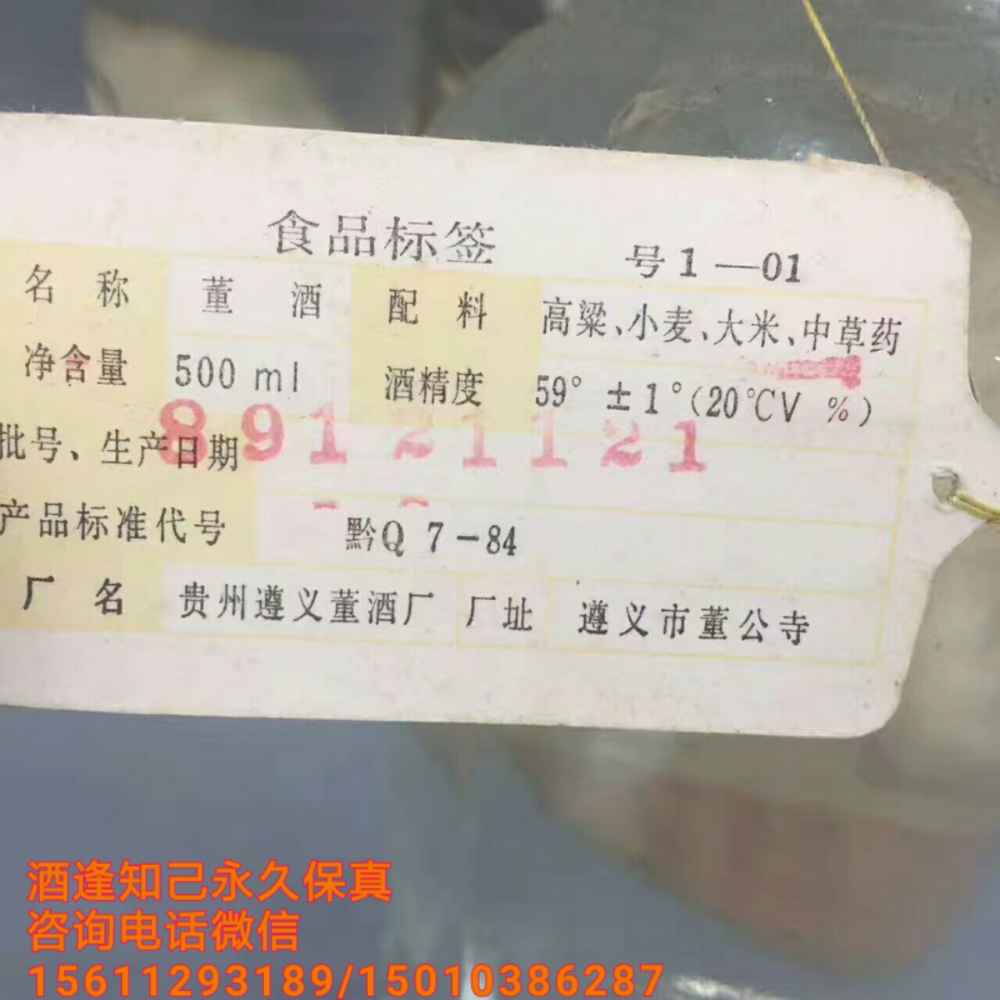 食品标签 号1—01
名称 董酒 配料 高粱、小麦、大米、中草药
净含量 500 ml 酒精度 59° ±1°(20℃V %)
批号、生产日期 89121121
产品标准代号 黔Q 7-84
厂名 贵州遵义董酒厂 厂址 遵义市董公寺
酒逢知己永久保真
咨询电话微信
15611293189/15010386287